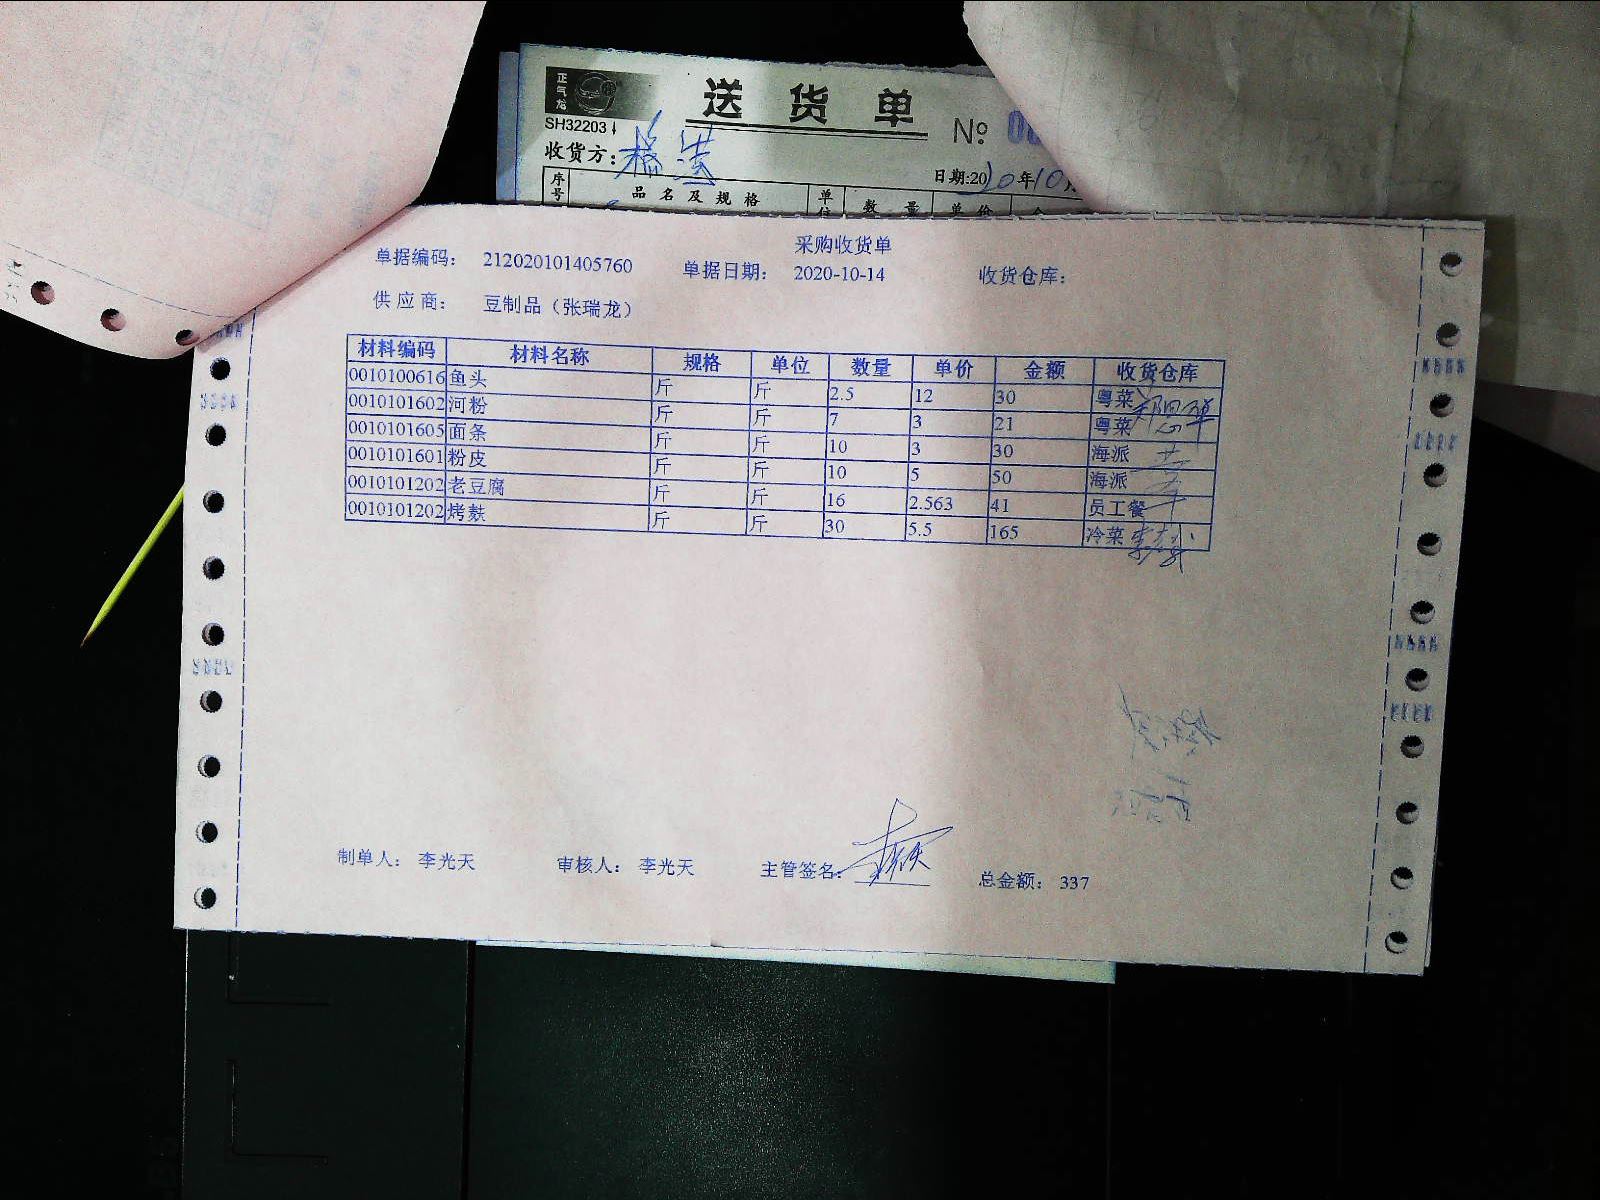 正气龙
送货单
SH32203
№
收货方:
日期:2020年10
序号 品名及规格 单位 数量 单价
采购收货单
单据编码: 212020101405760 单据日期: 2020-10-14 收货仓库:
供应商: 豆制品（张瑞龙）
材料编码 材料名称 规格 单位 数量 单价 金额 收货仓库
0010100616 鱼头 斤 斤 2.5 12 30 粤菜
0010101602 河粉 斤 斤 7 3 21 粤菜
0010101605 面条 斤 斤 10 3 30 海派
0010101601 粉皮 斤 斤 10 5 50 海派
0010101202 老豆腐 斤 斤 16 2.563 41 员工餐
0010101202 烤麸 斤 斤 30 5.5 165 冷菜
制单人: 李光天 审核人: 李光天 主管签名: 总金额: 337